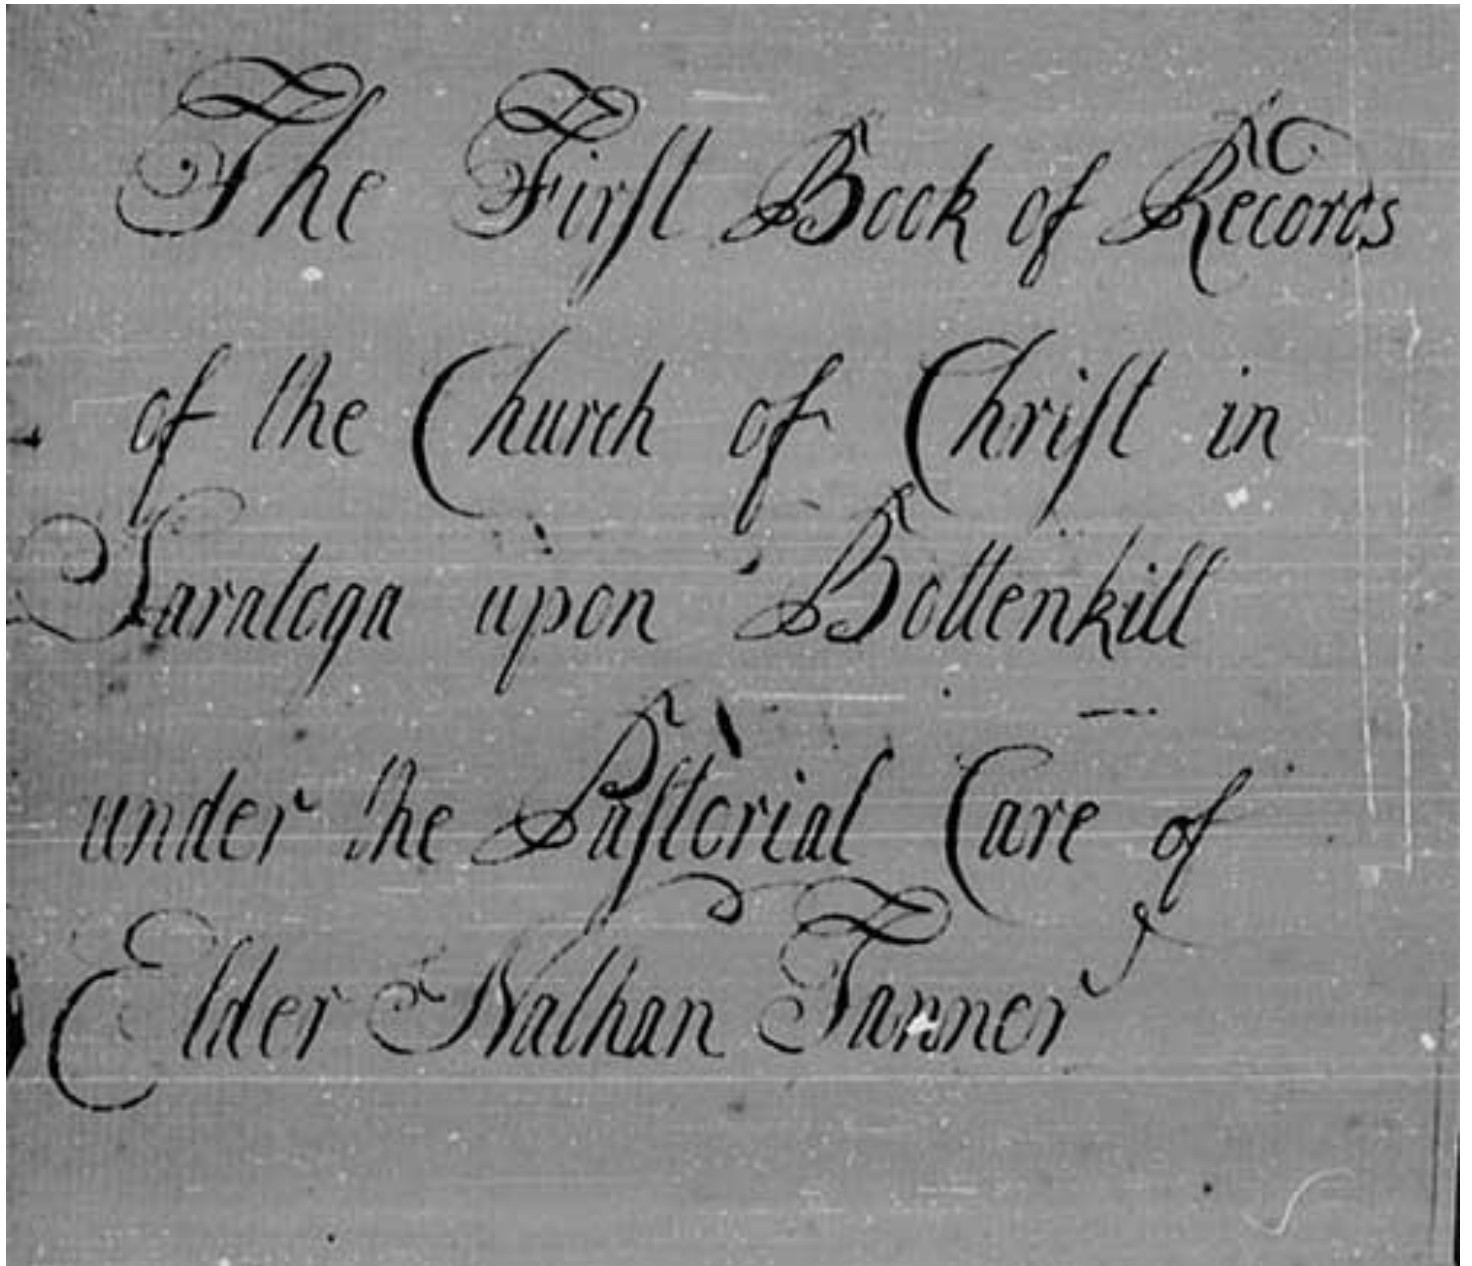 The Firſt Book of Records
of the Church of Chriſt in
Saratoga upon Bottenkill
under the Paſtorial Care of
Elder Nathan Tanner